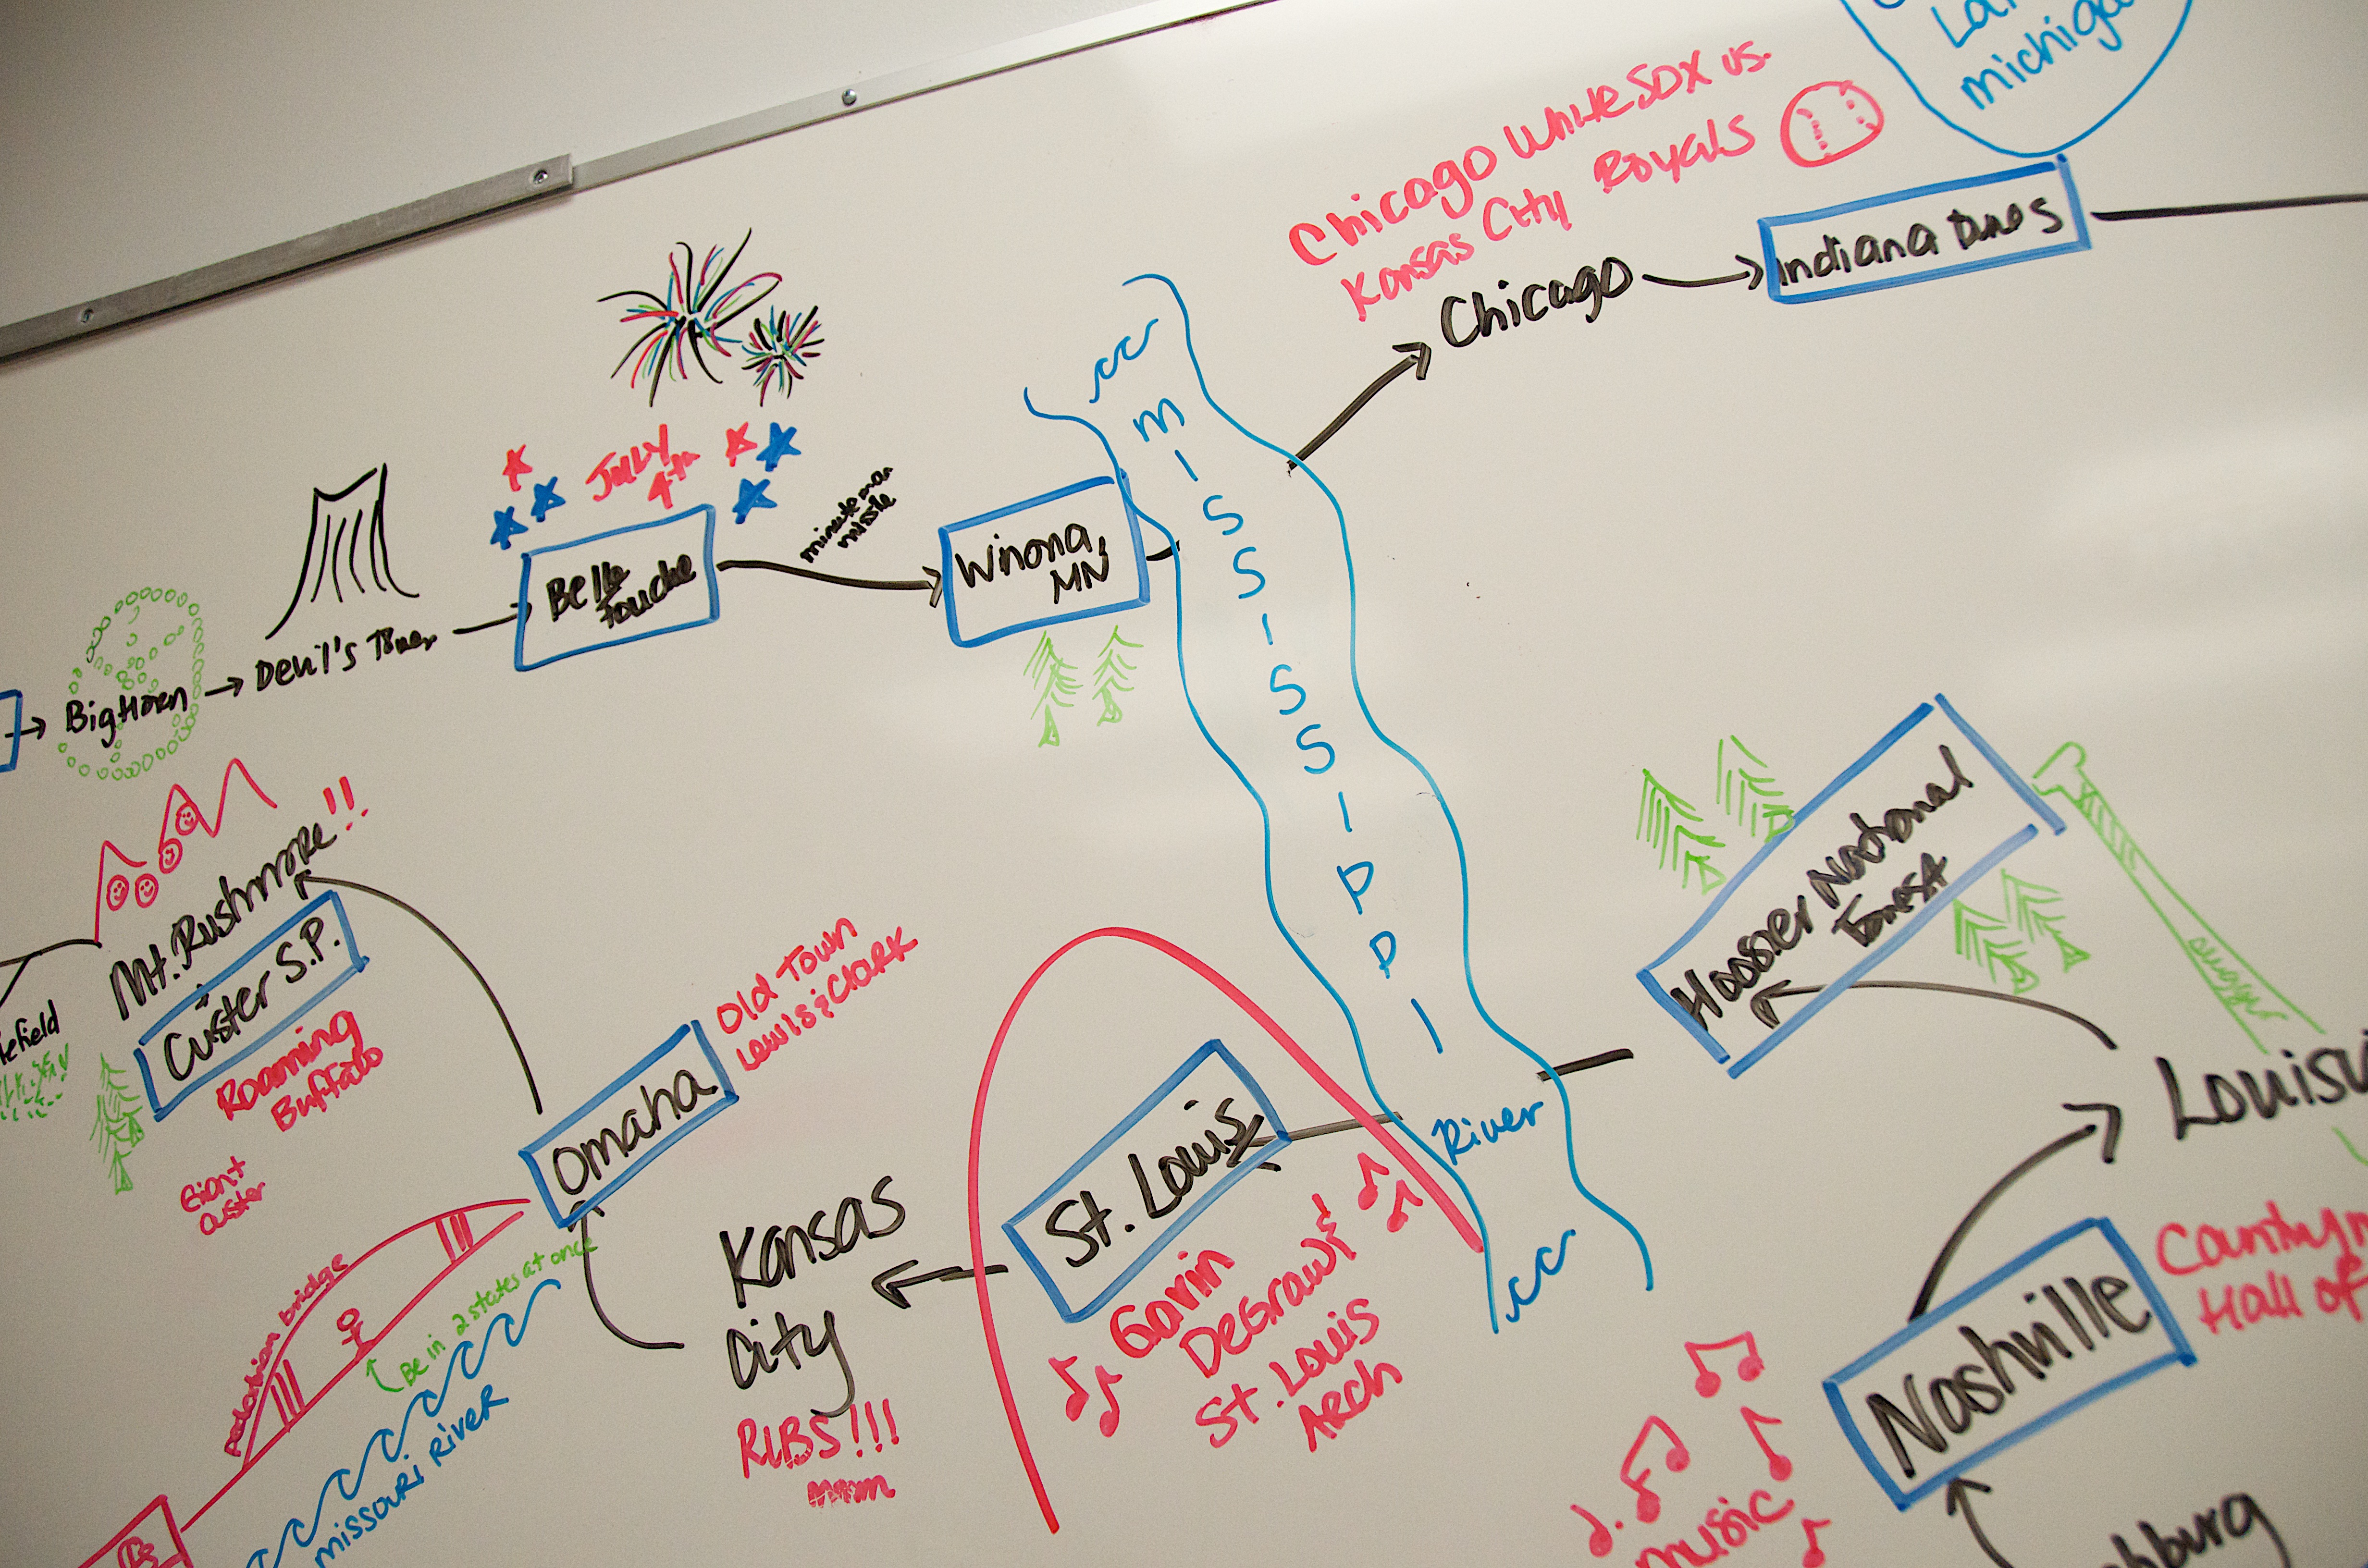 michiga
Chicago White SOX vs.
Kansas City Royals
Chicago
Indiana Dunes
JULY
4th
minute man
missle
Belle
Fouche
Winona,
MN
Devil's Tower
Big Horn
MISSISSIPPI
River
Mt. Rushmore!!
+
Custer S.P.
Roaming
Buffalo
Giant
Custer
efield
Omaha
Old Town
Lewis & Clark
pedestrian bridge
Be in 2 states at once
missouri River
Kansas
City
RIBS!!!
mmm
St. Louis
Gavin
DeGraw &
St. Louis
Arch
Hoosier National
Forest
Louisv
Nashville
Country m
Hall of
music
hburg